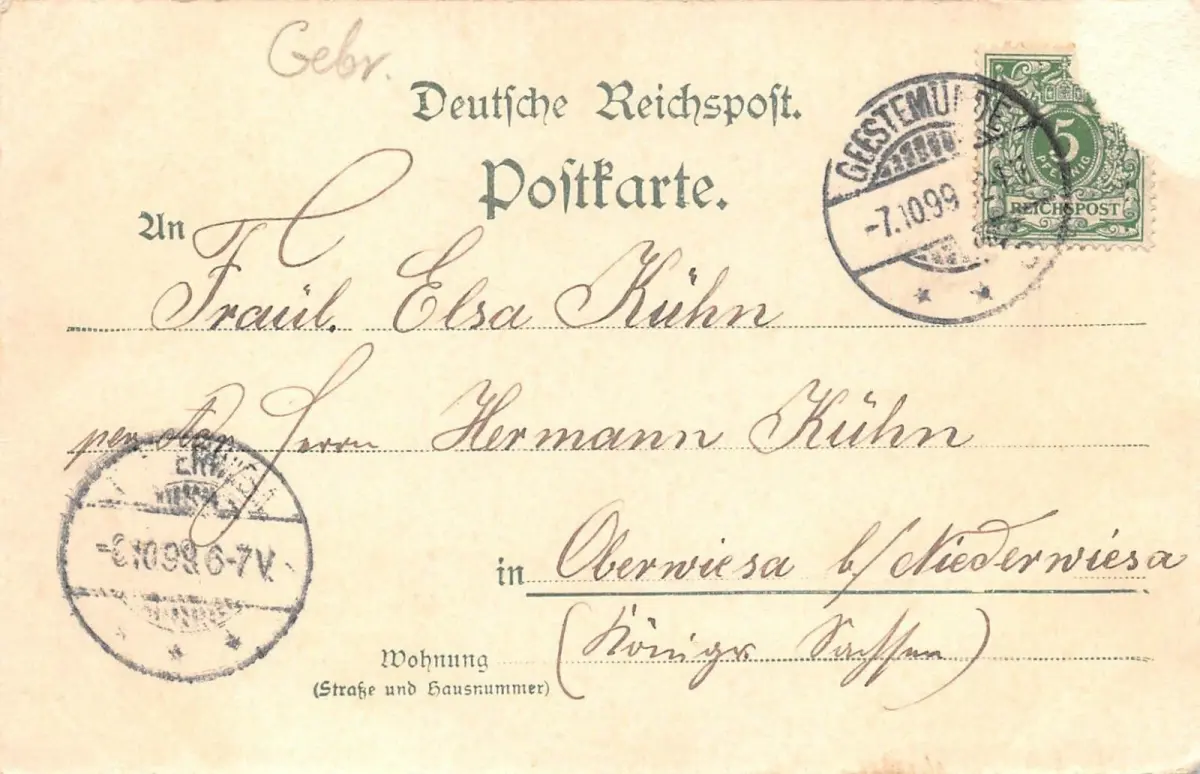 Gebr.
Deutsche Reichspost.
Postkarte.
GEESTEMÜNDE
-7.10.99
5
PFENNIG
REICHSPOST
An Fraül. Elsa Kühn
per Adr. Herrn Hermann Kühn
6-7V.
in Oberwiesa b/Niederwiesa
(Königr. Sachsen)
Wohnung
(Straße und Hausnummer)